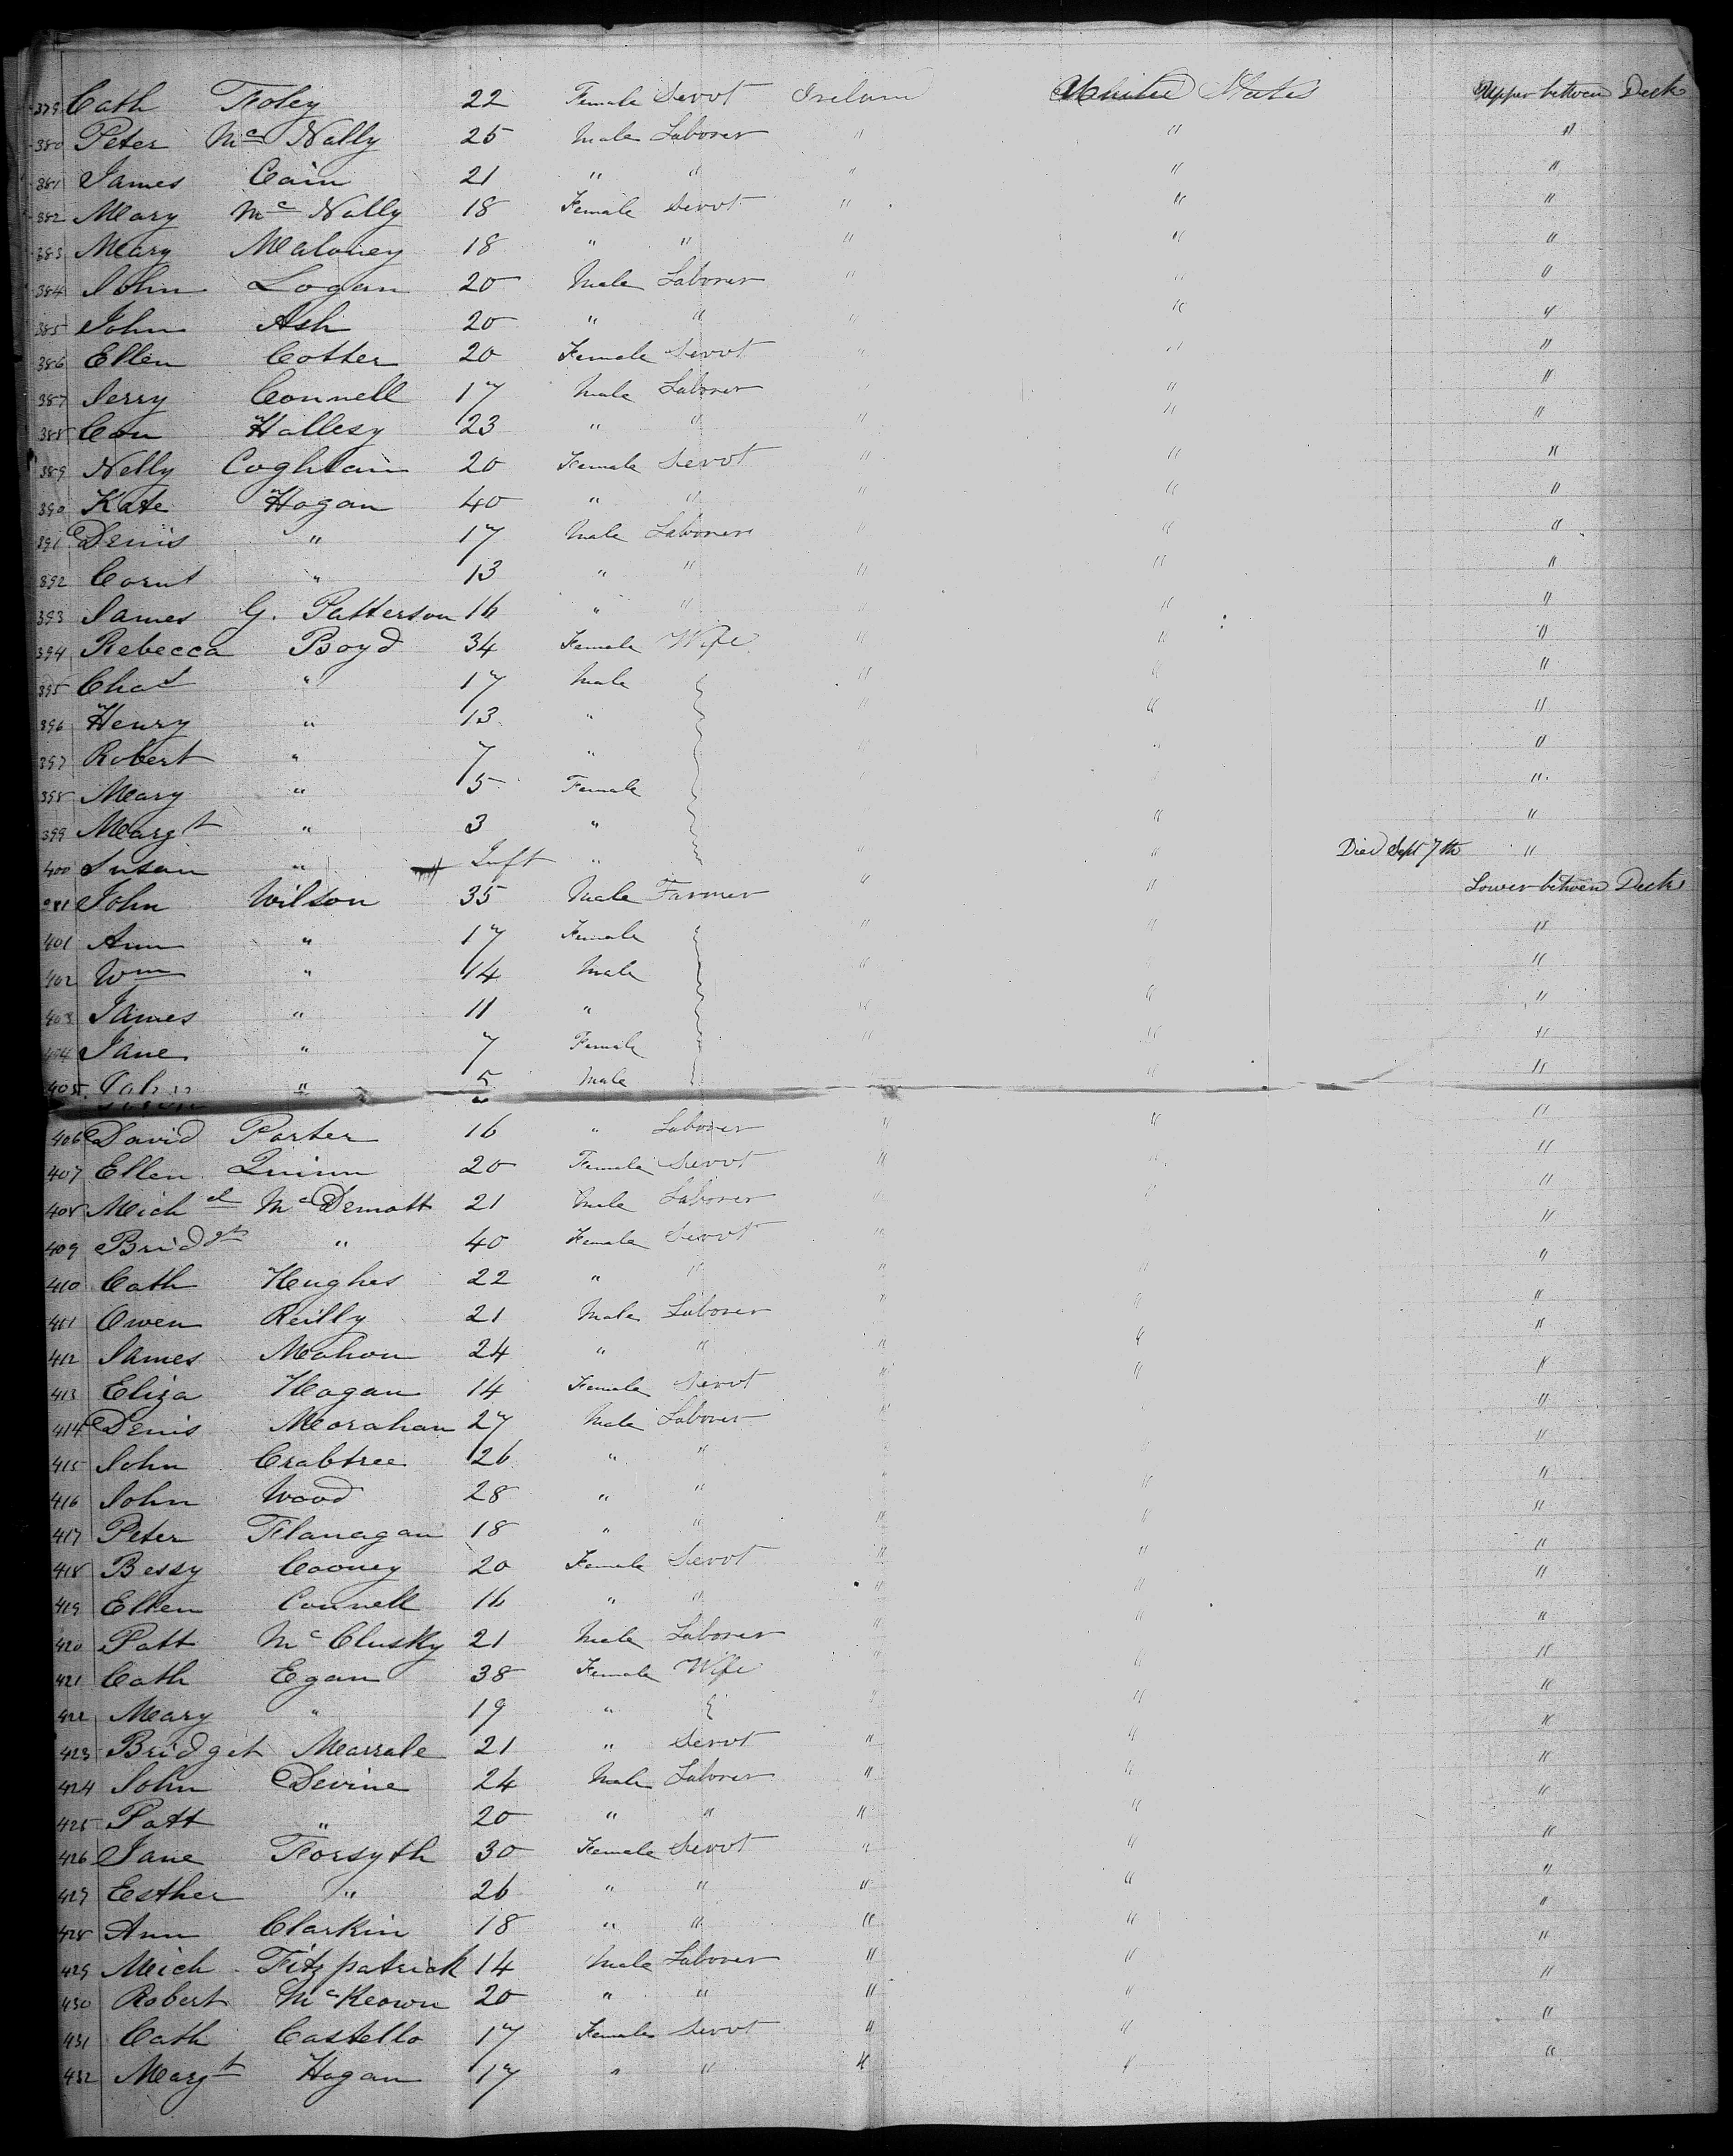 379 Cath Foley 22 Female Servt Ireland United States Upper between Decks
380 Peter Mc Nally 25 Male Laborer " " "
381 James Cain 21 " " " " "
382 Mary Mc Nally 18 Female Servt " " "
383 Mary Maloney 18 " " " " "
384 John Logan 20 Male Laborer " " "
385 John Ash 20 " " " " "
386 Ellen Cotter 20 Female Servt " " "
387 Jerry Connell 17 Male Laborer " " "
388 Con Hallesy 23 " " " " "
389 Nelly Coghlain 20 Female Servt " " "
390 Kate Hogan 40 " " " " "
391 Denis " 17 Male Laborer " " "
392 Cornl " 13 " " " " "
393 James G. Patterson 16 " " " " "
394 Rebecca Boyd 34 Female Wife " " "
395 Chas " 17 Male " " "
396 Henry " 13 " " " "
397 Robert " 7 " " " "
398 Mary " 5 Female " " "
399 Margt " 3 " " " "
400 Susan " Inft " " " Died Sept 7th "
John Wilson 35 Male Farmer " " Lower between Decks
401 Ann " 17 Female " " "
402 Wm " 14 Male " " "
403 James " 11 " " " "
404 Jane " 7 Female " " "
405 John " 5 Male " "
406 David Porter 16 " Laborer " " "
407 Ellen Quinn 20 Female Servt " " "
408 Michel McDemott 21 Male Laborer " " "
409 Bridgt " 40 Female Servt " " "
410 Cath Hughes 22 " " " " "
411 Owen Reilly 21 Male Laborer " " "
412 James Mahon 24 " " " " "
413 Eliza Hogan 14 Female Servt " " "
414 Denis Morahan 27 Male Laborer " " "
415 John Crabtree 26 " " " " "
416 John Wood 28 " " " " "
417 Peter Flanagan 18 " " " " "
418 Bessy Cooney 20 Female Servt " " "
419 Ellen Connell 16 " " " " "
420 Patt McClusky 21 Male Laborer " " "
421 Cath Egan 38 Female Wife " " "
422 Mary " 19 " " " "
423 Bridget Marrale 21 " Servt " " "
424 John Devine 24 Male Laborer " " "
425 Patt " 20 " " " " "
426 Jane Forsyth 30 Female Servt " " "
427 Esther " 26 " " " " "
428 Ann Clarkin 18 " " " " "
429 Mich Fitzpatrick 14 Male Laborer " " "
430 Robert McKeown 20 " " " " "
431 Cath Castello 17 Female Servt " " "
432 Margt Hogan 17 " " " " "